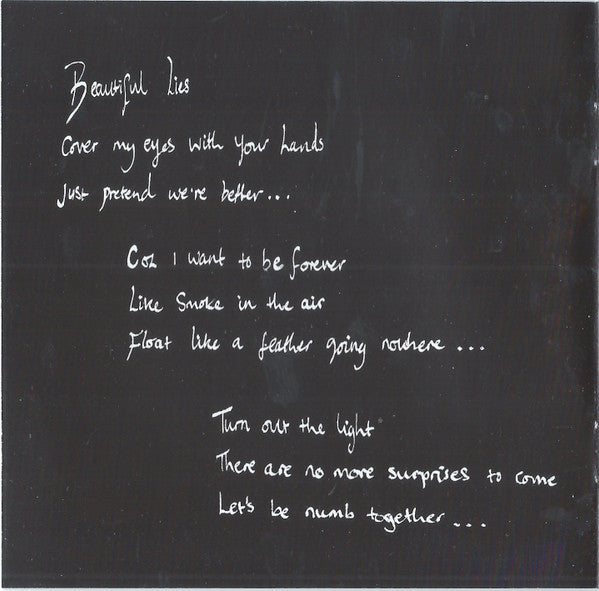 Beautiful Lies
Cover my eyes with your hands
Just pretend we're better...
Coz I want to be forever
Like Smoke in the air
Float like a feather going nowhere ...
Turn out the light
There are no more surprises to come
Let's be numb together ...